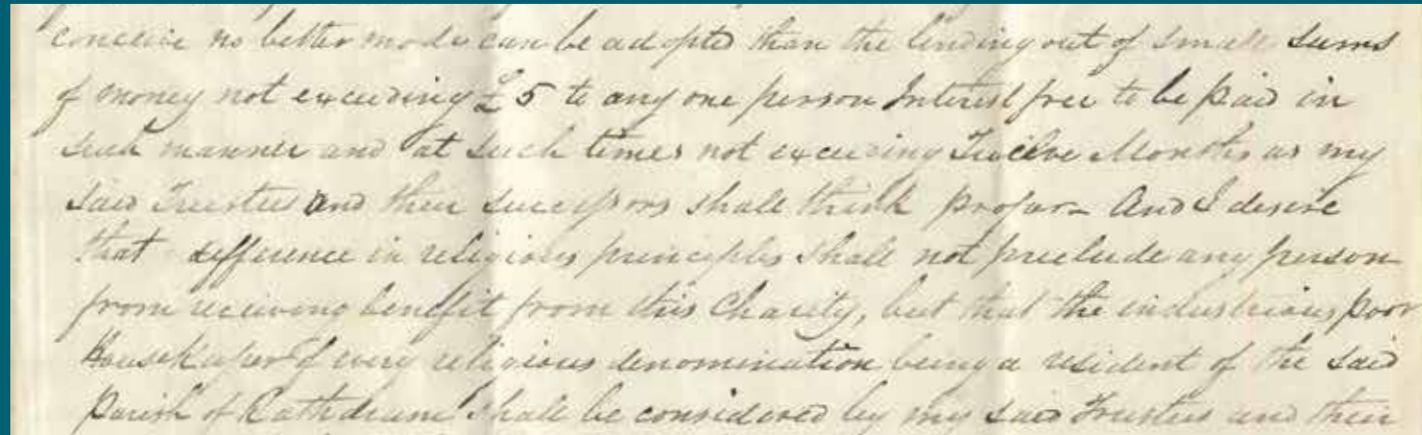 conceive no better mode can be adopted than the lending out of small sums
of money not exceeding £5 to any one person Interest free to be paid in
such manner and at such times not exceeding Twelve Months as my
said Trustees and their successors shall think proper – And I desire
that difference in religious principles shall not preclude any person
from receiving benefit from this Charity, but that the industrious poor
Housekeeper of every religious denomination being a resident of the said
Parish of Rathdrum shall be considered by my said Trustees and their